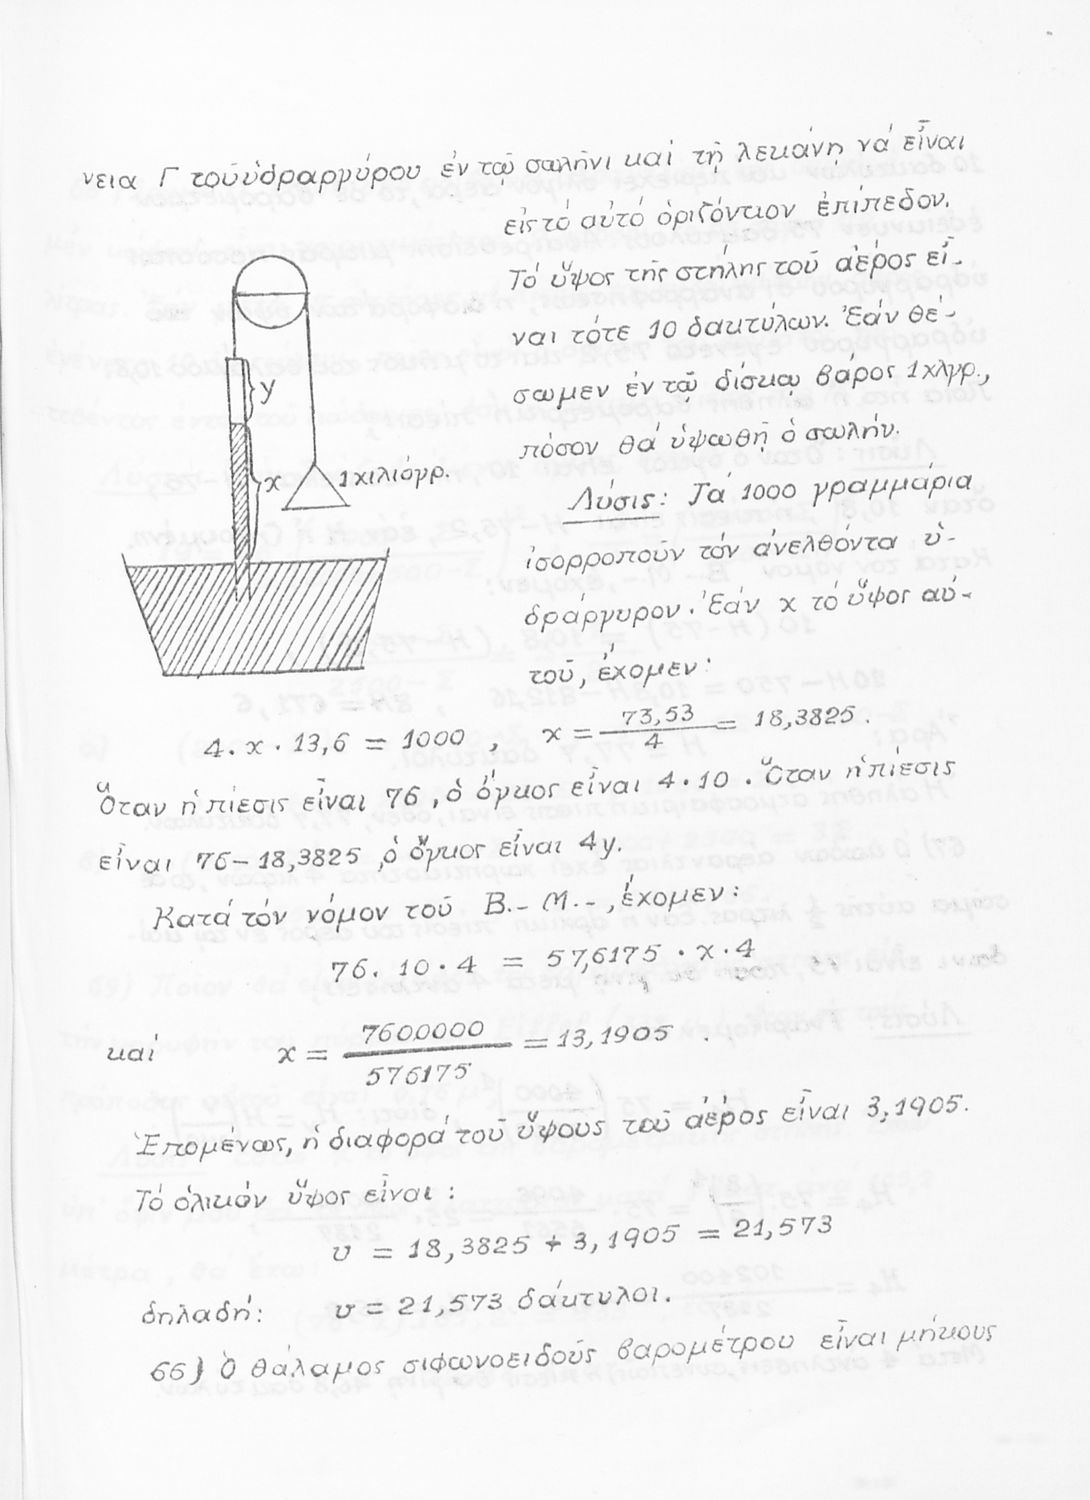 νεια Γ τοῦ ὑδραργύρου ἐν τῷ σωλῆνι καί τῇ λεκάνῃ νά εἶναι
εἰς τό αὐτό ὁριζόντιον ἐπίπεδον.
Τό ὕψος τῆς στήλης τοῦ ἀέρος εἶ-
ναι τότε 10 δακτύλων. Ἐάν θέ-
σωμεν ἐν τῷ δίσκῳ βάρος 1 χλγρ.,
πόσον θά ὑψωθῇ ὁ σωλήν.
y
x
1 χιλιόγρ.
Λύσις: Τά 1000 γραμμάρια
ἰσορροποῦν τόν ἀνελθόντα ὑ-
δράργυρον. Ἐάν x τό ὕψος αὐ-
τοῦ, ἔχομεν:
4. x . 13,6 = 1000 , x = 73,53/4 = 18,3825.
Ὅταν ἡ πίεσις εἶναι 76, ὁ ὄγκος εἶναι 4.10. Ὅταν ἡ πίεσις
εἶναι 76 - 18,3825, ὁ ὄγκος εἶναι 4y.
Κατά τόν νόμον τοῦ B.- M.-, ἔχομεν:
76. 10 . 4 = 57,6175 . x . 4
καί x = 7600000/576175 = 13,1905 .
Ἑπομένως, ἡ διαφορά τοῦ ὕψους τοῦ ἀέρος εἶναι 3,1905.
Τό ὁλικόν ὕψος εἶναι :
υ = 18,3825 + 3,1905 = 21,573
δηλαδή: υ = 21,573 δάκτυλοι.
66) Ὁ θάλαμος σιφωνοειδοῦς βαρομέτρου εἶναι μήκους